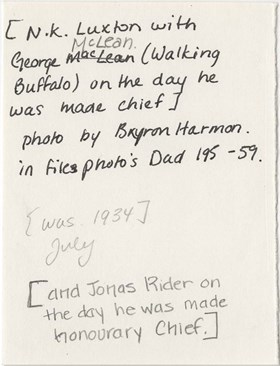 [N.K. Luxton with
McLean.
George MacLean (Walking
Buffalo) on the day he
was made chief]
photo by Bryron Harmon.
in files photo's Dad 195-59.
[was 1934]
July
[and Jonas Rider on
the day he was made
honourary Chief.]